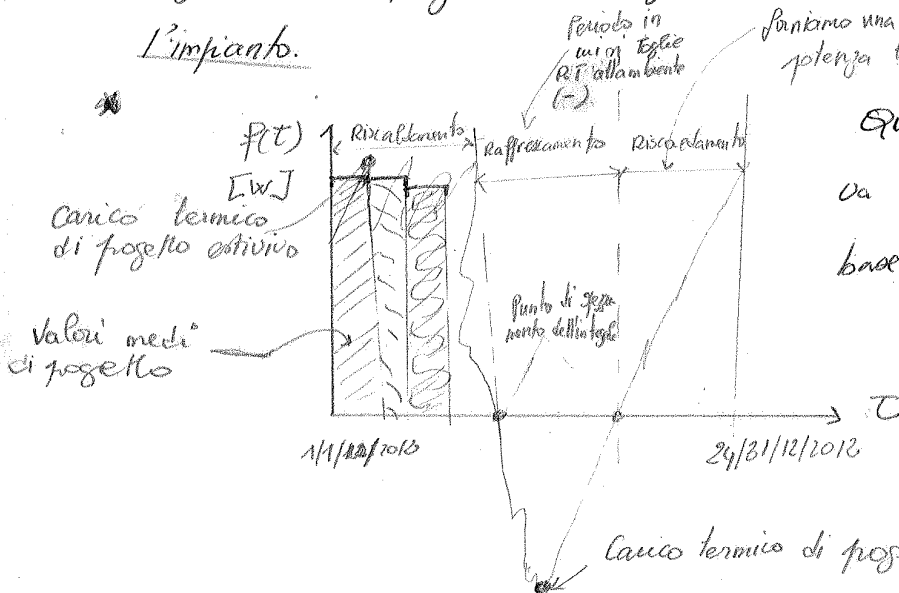 L'impianto.
Periodo in
cui si toglie
P.T all'ambiente
(-)
forniamo una
potenza
f(τ)
[W]
Riscaldamento
Raffrescamento
Riscaldamento
Qu
va
base
Carico termico
di progetto estivivo
Valori medi
di progetto
Punto di spezza
mento dell'integ
τ
1/1/2012
24/31/12/2012
Carico termico di prog